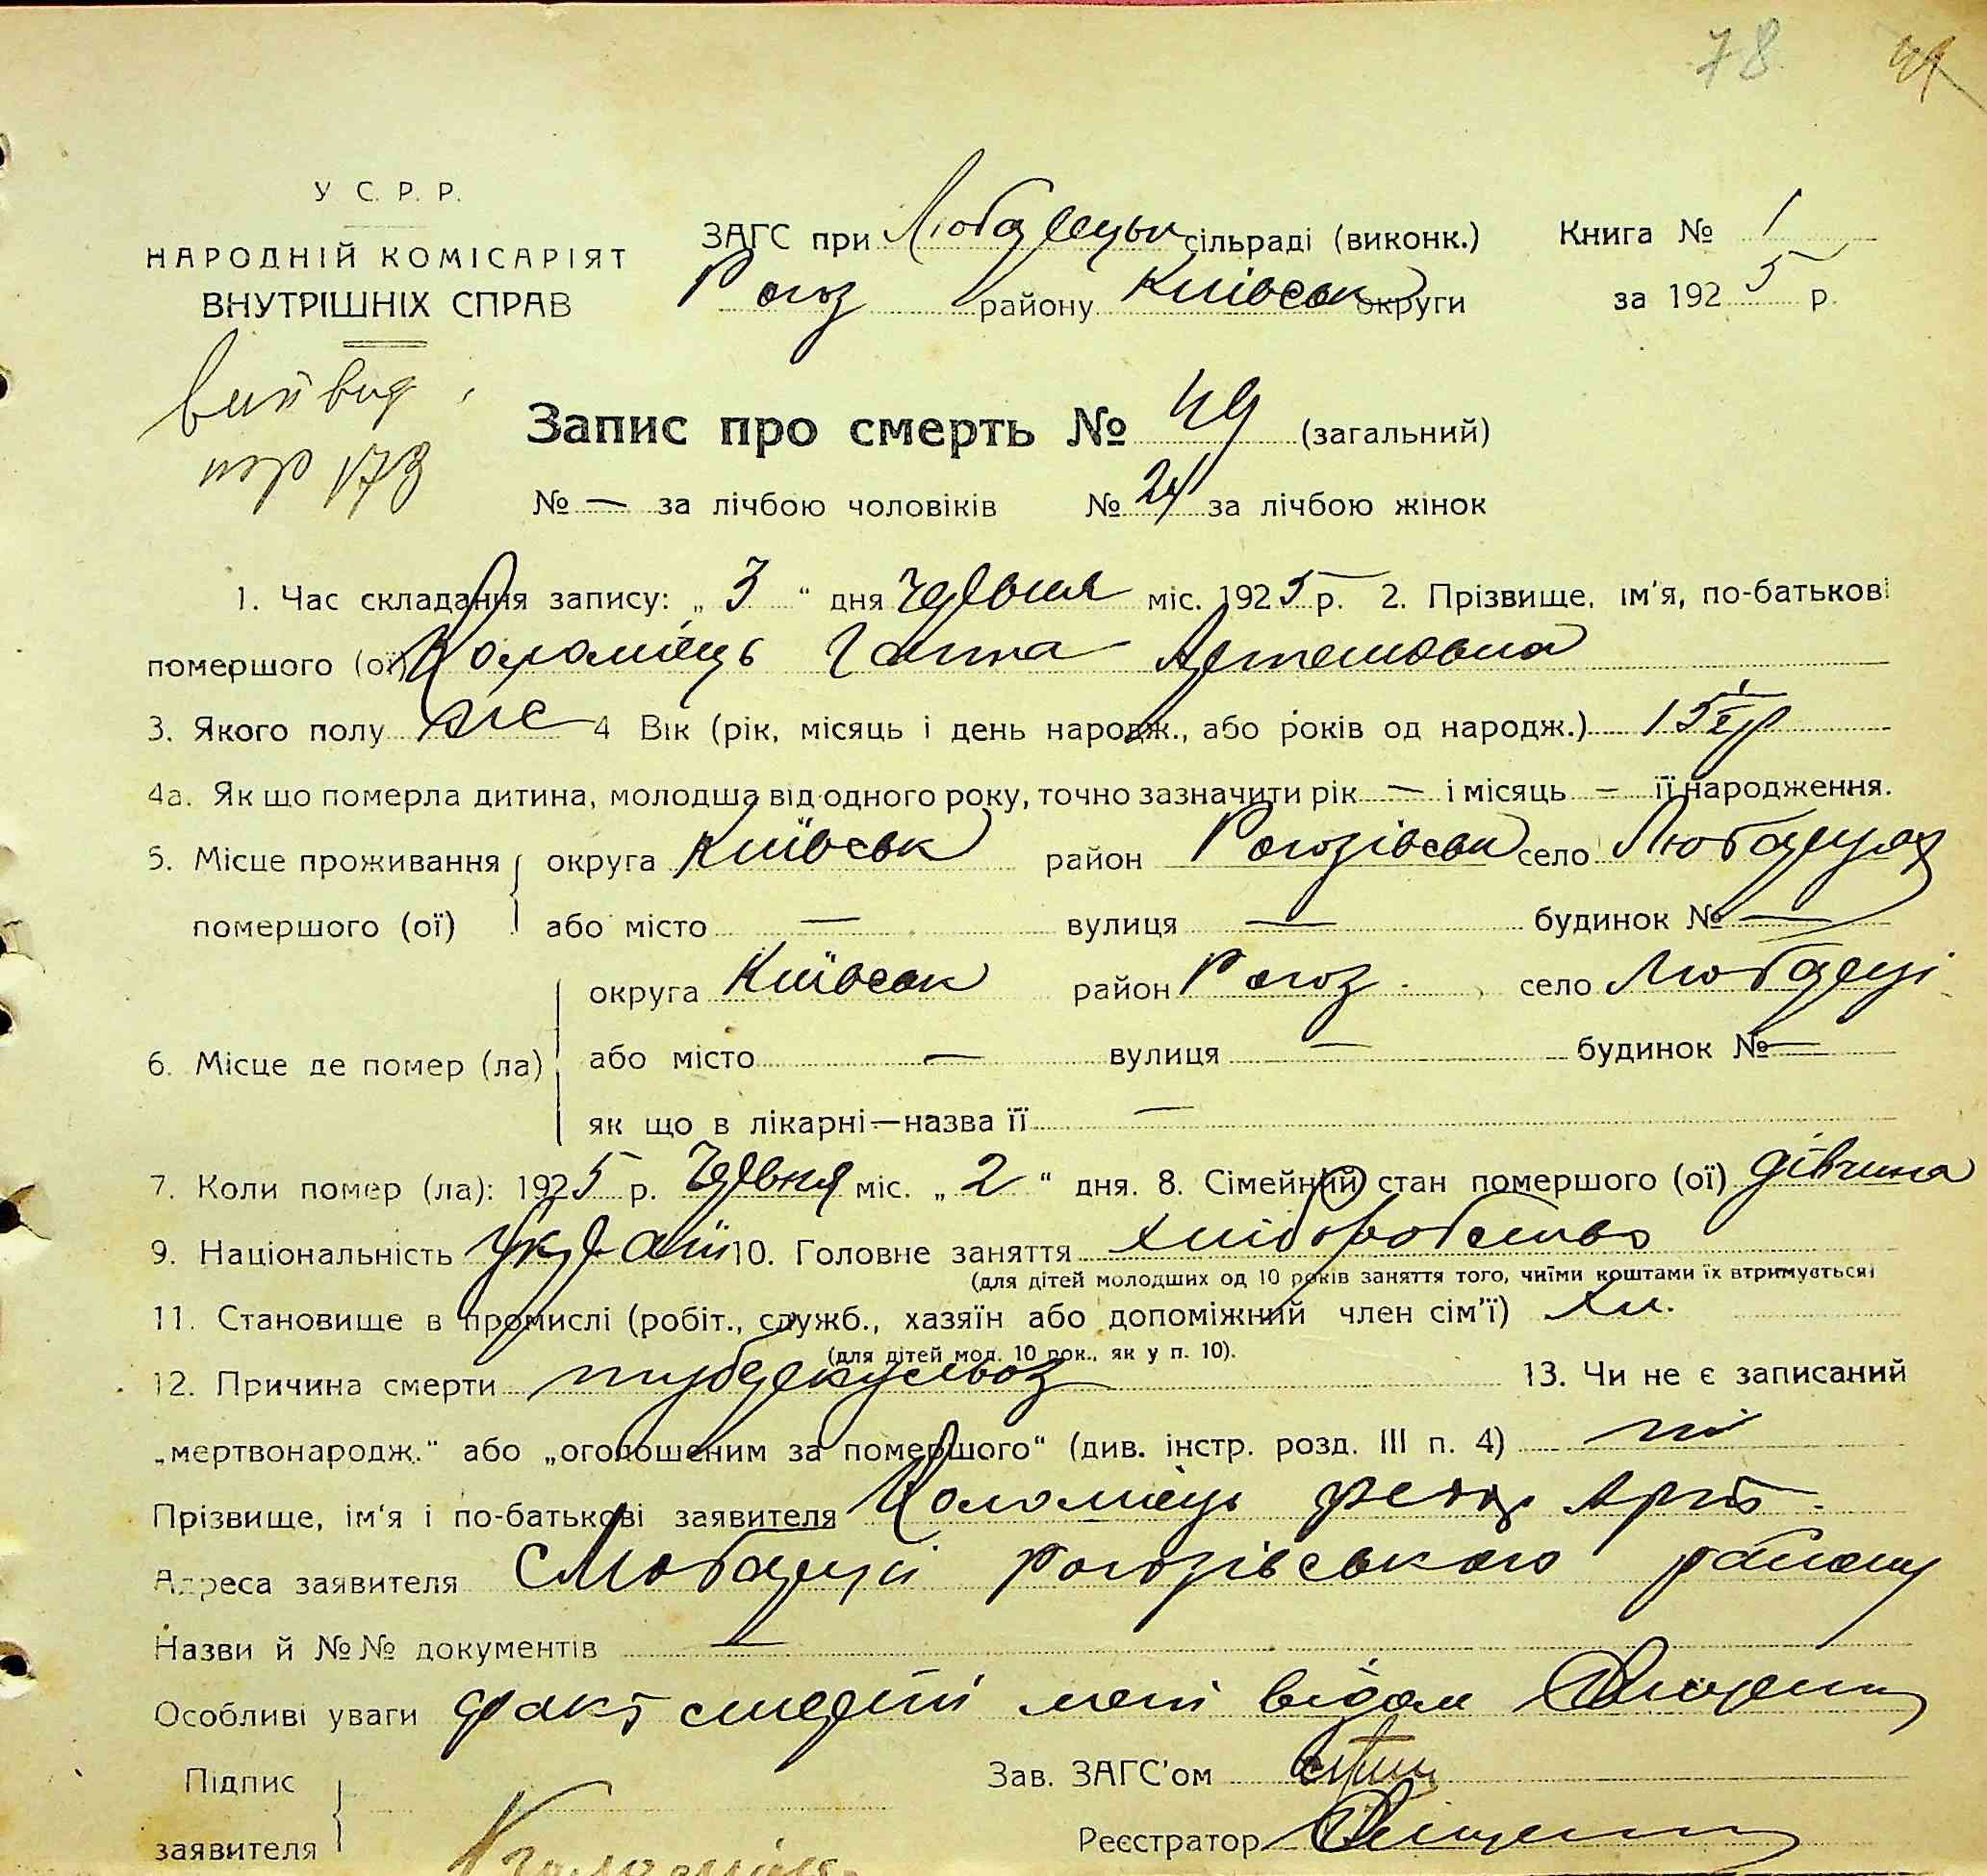 78 49
У С. Р. Р.
НАРОДНІЙ КОМІСАРІЯТ
ВНУТРІШНІХ СПРАВ
ЗАГС при Любарецьк сільраді (виконк.)
Рогоз району Київськ округи
Книга № 1
за 1925 р.
пор 178
Запис про смерть № 49 (загальний)
№ — за лічбою чоловіків № 24 за лічбою жінок
1. Час складання запису: „ 3 “ дня червня міс. 1925 р. 2. Прізвище, ім'я, по-батькові
помершого (ої) Коломієць Ганна Артемовна
3. Якого полу же 4 Вік (рік, місяць і день народж., або років од народж.) 15 р
4а. Як що померла дитина, молодша від одного року, точно зазначити рік — і місяць — її народження.
5. Місце проживання округа Київськ район Рогозівськ село Любарцях
помершого (ої) або місто — вулиця — будинок № —
округа Київськ район Рогоз. село Любарці
6. Місце де помер (ла) або місто — вулиця — будинок № —
як що в лікарні—назва її —
7. Коли помер (ла): 1925 р. червня міс. „ 2 “ дня. 8. Сімейний стан помершого (ої) дівчина
9. Національність Україн 10. Головне заняття хліборобство
(для дітей молодших од 10 років заняття того, чиїми коштами їх втримується)
11. Становище в промислі (робіт., служб., хазяїн або допоміжний член сім'ї) хл.
(для дітей мол. 10 рок., як у п. 10).
12. Причина смерти туберкульоз 13. Чи не є записаний
„мертвонародж.“ або „оголошеним за помершого“ (див. інстр. розд. III п. 4) ні
Прізвище, ім'я і по-батькові заявителя Коломієць Федор Арт.
Адреса заявителя с Любарці Рогозівського району
Назви й №№ документів —
Особливі уваги факт смерті мені відом
Підпис
заявителя
Зав. ЗАГС'ом
Реєстратор